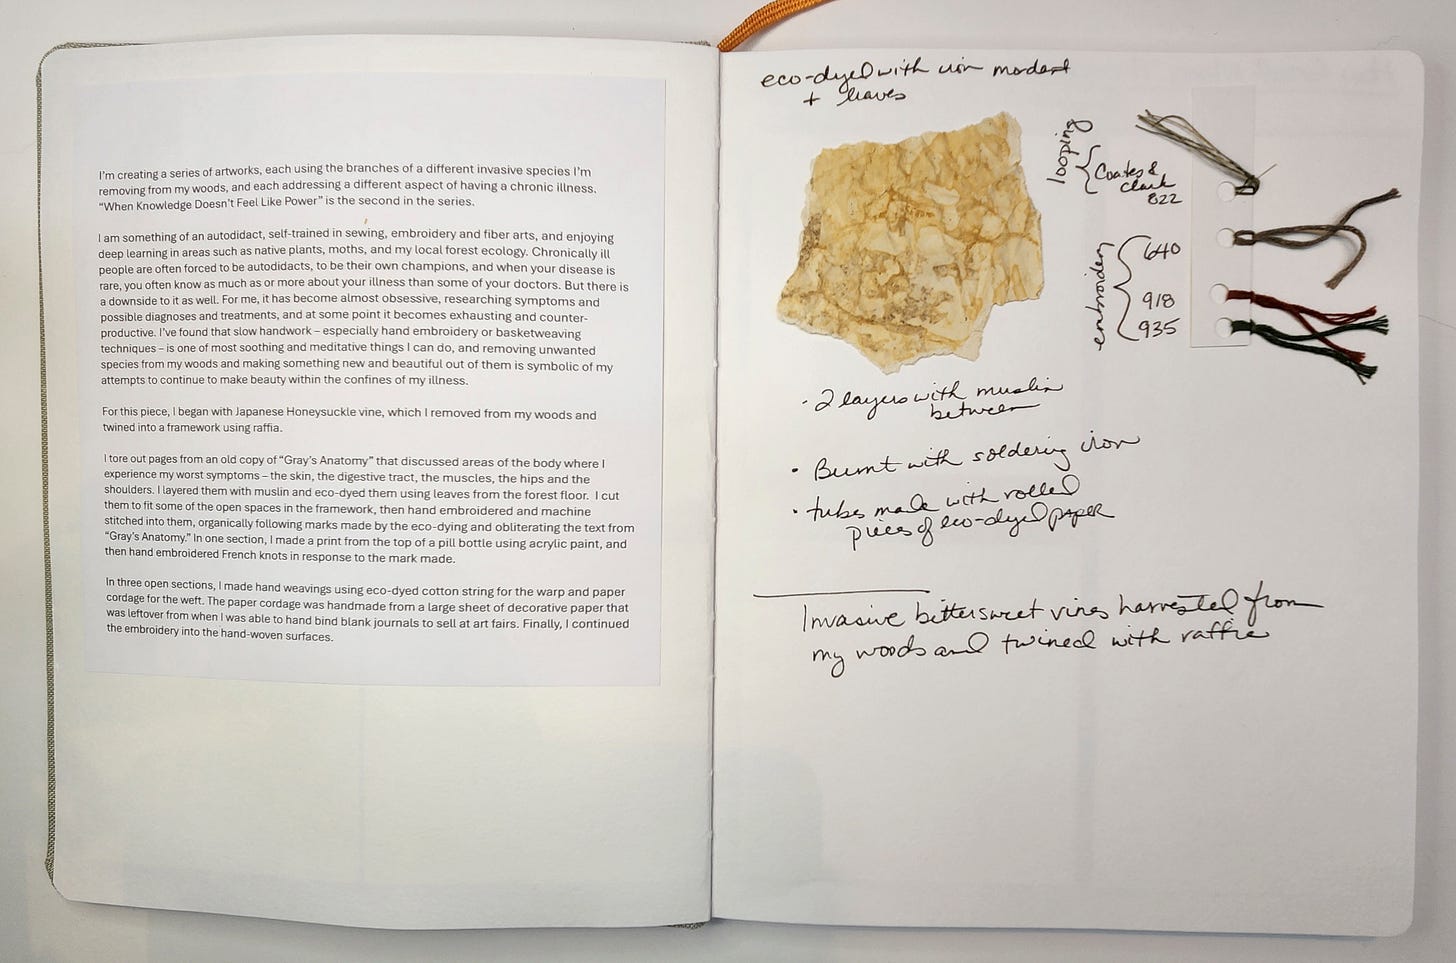 I'm creating a series of artworks, each using the branches of a different invasive species I'm
removing from my woods, and each addressing a different aspect of having a chronic illness.
“When Knowledge Doesn't Feel Like Power” is the second in the series.
I am something of an autodidact, self-trained in sewing, embroidery and fiber arts, and enjoying
deep learning in areas such as native plants, moths, and my local forest ecology. Chronically ill
people are often forced to be autodidacts, to be their own champions, and when your disease is
rare, you often know as much as or more about your illness than some of your doctors. But there is
a downside to it as well. For me, it has become almost obsessive, researching symptoms and
possible diagnoses and treatments, and at some point it becomes exhausting and counter-
productive. I've found that slow handwork – especially hand embroidery or basketweaving
techniques – is one of most soothing and meditative things I can do, and removing unwanted
species from my woods and making something new and beautiful out of them is symbolic of my
attempts to continue to make beauty within the confines of my illness.
For this piece, I began with Japanese Honeysuckle vine, which I removed from my woods and
twined into a framework using raffia.
I tore out pages from an old copy of “Gray's Anatomy” that discussed areas of the body where I
experience my worst symptoms – the skin, the digestive tract, the muscles, the hips and the
shoulders. I layered them with muslin and eco-dyed them using leaves from the forest floor. I cut
them to fit some of the open spaces in the framework, then hand embroidered and machine
stitched into them, organically following marks made by the eco-dying and obliterating the text from
“Gray's Anatomy.” In one section, I made a print from the top of a pill bottle using acrylic paint, and
then hand embroidered French knots in response to the mark made.
In three open sections, I made hand weavings using eco-dyed cotton string for the warp and paper
cordage for the weft. The paper cordage was handmade from a large sheet of decorative paper that
was leftover from when I was able to hand bind blank journals to sell at art fairs. Finally, I continued
the embroidery into the hand-woven surfaces.
eco-dyed with iron mordant
+ leaves
looping
Coates &
Clark
822
embroidery
640
918
935
· 2 layers with muslin
between
• Burnt with soldering iron
• tubes made with rolled
pieces of eco-dyed paper
Invasive bittersweet vines harvested from
my woods and twined with raffia